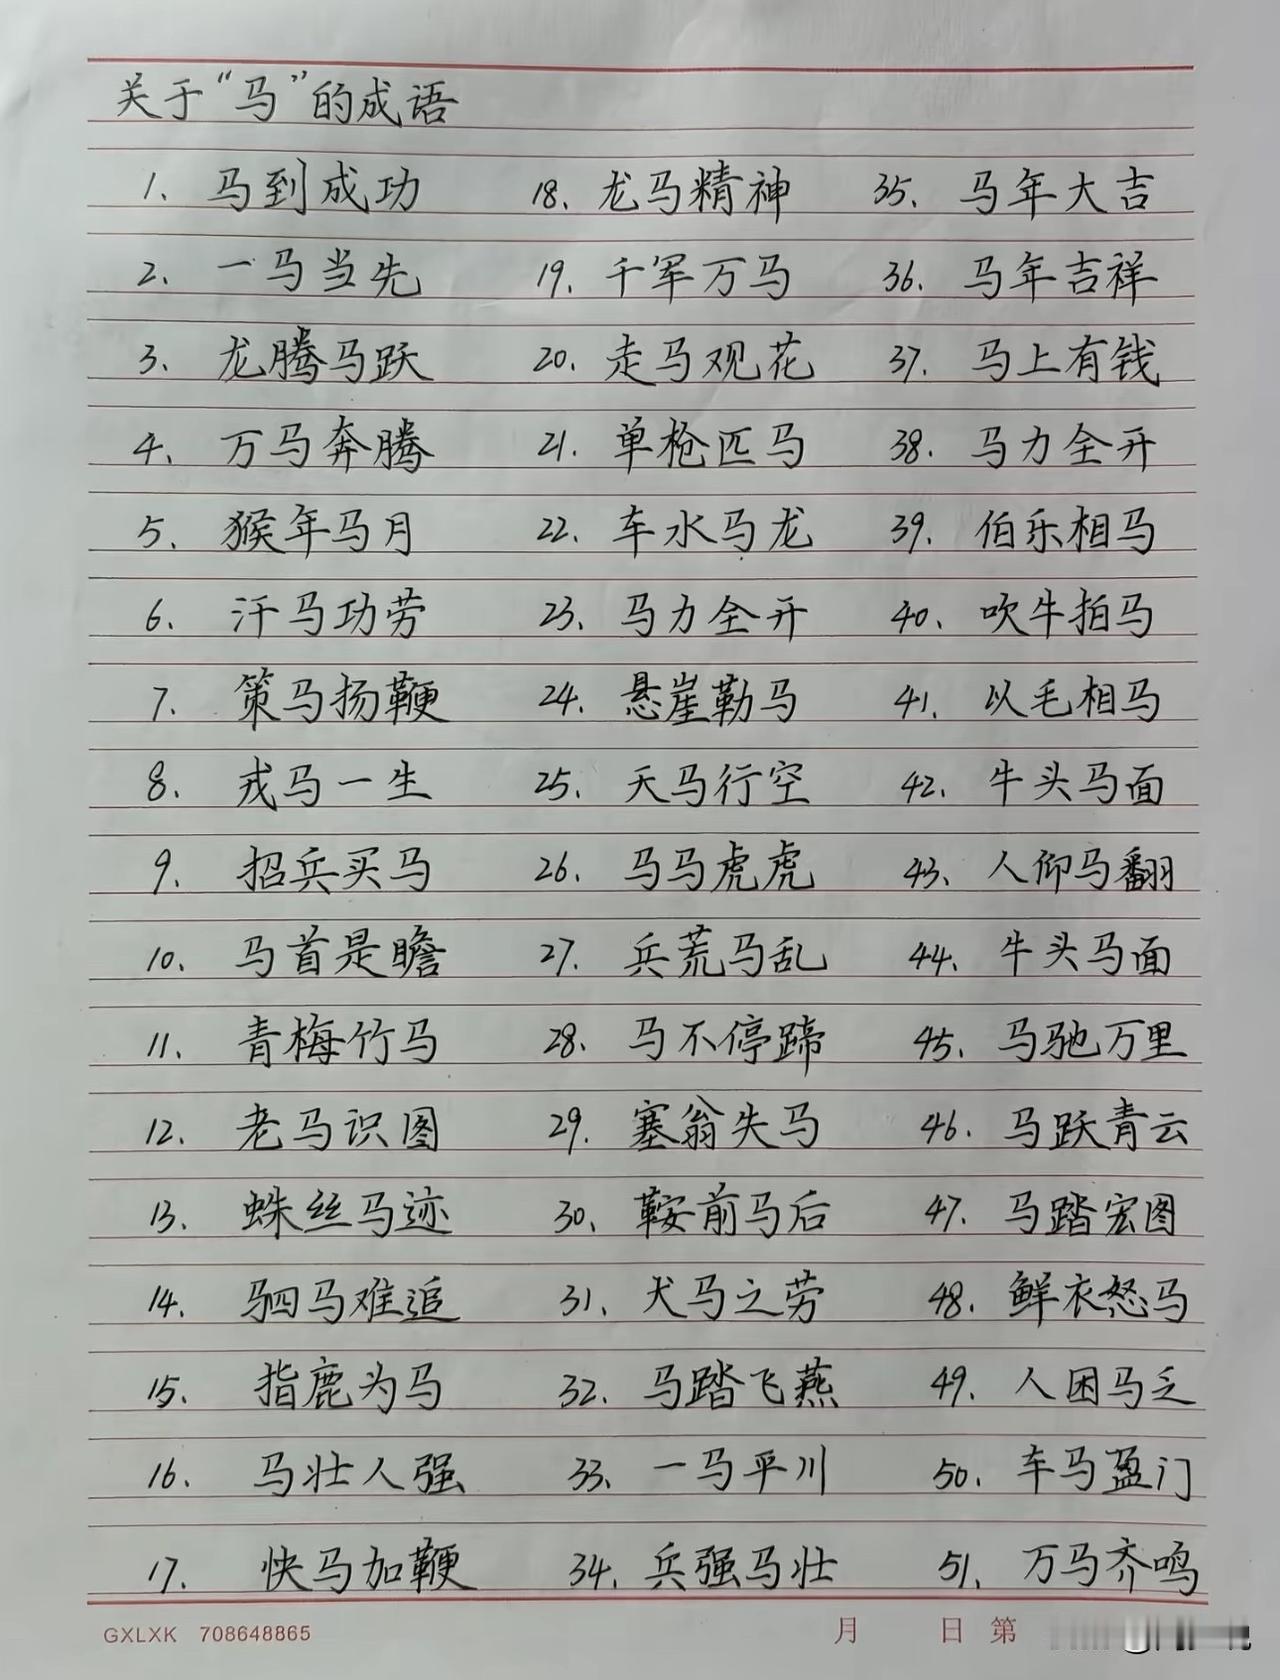 关于“马”的成语
1. 马到成功 18. 龙马精神 35. 马年大吉
2. 一马当先 19. 千军万马 36. 马年吉祥
3. 龙腾马跃 20. 走马观花 37. 马上有钱
4. 万马奔腾 21. 单枪匹马 38. 马力全开
5. 猴年马月 22. 车水马龙 39. 伯乐相马
6. 汗马功劳 23. 马力全开 40. 吹牛拍马
7. 策马扬鞭 24. 悬崖勒马 41. 以毛相马
8. 戎马一生 25. 天马行空 42. 牛头马面
9. 招兵买马 26. 马马虎虎 43. 人仰马翻
10. 马首是瞻 27. 兵荒马乱 44. 牛头马面
11. 青梅竹马 28. 马不停蹄 45. 马驰万里
12. 老马识图 29. 塞翁失马 46. 马跃青云
13. 蛛丝马迹 30. 鞍前马后 47. 马踏宏图
14. 驷马难追 31. 犬马之劳 48. 鲜衣怒马
15. 指鹿为马 32. 马踏飞燕 49. 人困马乏
16. 马壮人强 33. 一马平川 50. 车马盈门
17. 快马加鞭 34. 兵强马壮 51. 万马齐鸣
GXLXK 708648865 月 日 第